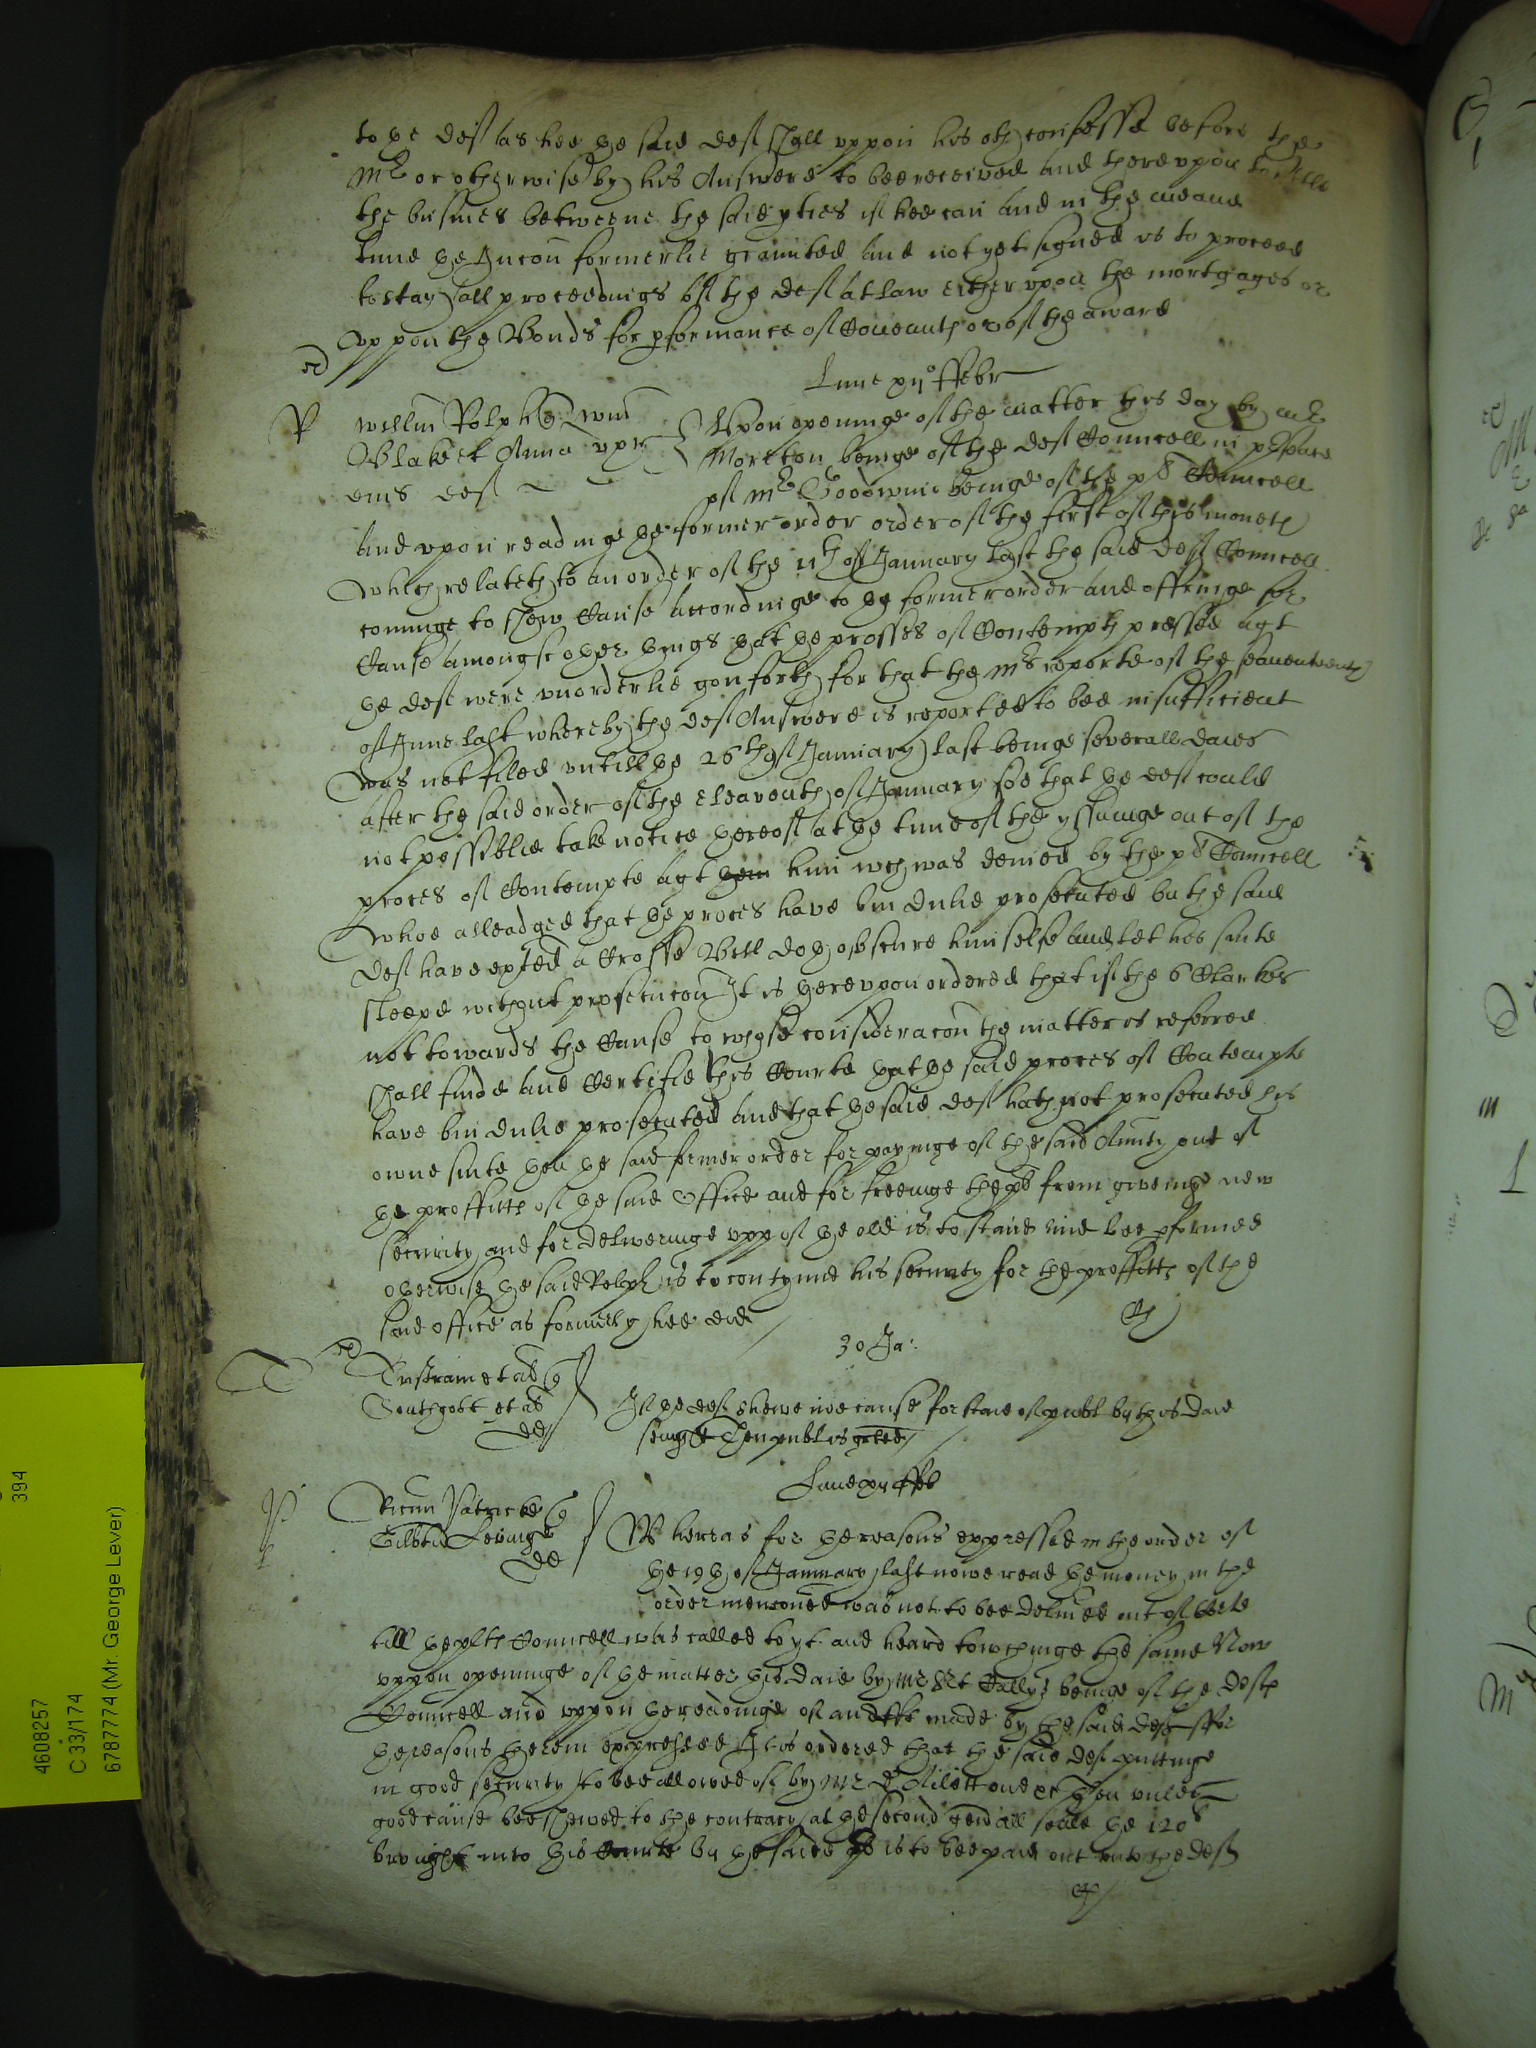 to the deft as hee the said deft shall uppon his oth confesse before the
Mr or otherwise by his Answere to bee received and thereupon to settle
the busines betweene the said pties if hee can and in the meane
tyme the Iniuncon formerlie graunted and not yet signed is to proceed
to stay all proceedings of the deft at law either upon the mortgages or
uppon the Bonds for pformance of Covenants or of the award
Lune xii° ffebr
Willm Rolph q Wm
Blake et Anna uxr
eius deft
Upon openinge of the matter this day by Mr
Moreton beinge of the deft Councell in psence
of Mr Goodwin beinge of the pl Councell
and upon readinge the former order order of the first of this moneth
which relateth to an order of the 11th of January last the said deft Councell
cominge to shew Cause accordinge to the former order and offringe for
Cause amongst other things that the prosses of Contempth pressed agt
the deft were unorderlie gon forth for that the Mrs reporte of the seaventeenth
of June last whereby the deft Answere is reported to bee insufficient
was not filed untill the 26th of January last beinge severall daies
after the said order of the eleaventh of January soe that the deft could
not possiblie take notice thereof at the time of the yssuinge out of the
proces of Contempte agt them him wch was denied by the pl Councell
whoe alleadged that the proces have bin dulie prosecuted but the said
deft have exhted a Crosse Bill doth obscure himselfe and let his suite
sleepe without prosecucon It is thereupon ordered that if the 6 Clarkes
not towards the Cause to whose consideracon the matter is referred
shall finde and Certifie this Courte that the said proces of Contempte
have bin dulie prosecuted and that the said deft hath not prosecuted his
owne suite then the said former order for payinge of the said Anuity out of
the proffitts of the said Office and for freeinge the pl from giveinge new
security and for deliveringe upp of the old is to stand and bee pformed
otherwise the said Rolph is to contynue his security for the proffitts of the
said office as formerly hee did
30 Ja:
Tristram et al q
Southcott et al
deft
If the deft shewe noe cause for staie of publ by this daie
sennight then publ is graunted
Lune xii ffeb
Ricum Patricke q
Gilbtu Levinge
deft
Whereas for the reasons expressed in the order of
the 19th of January last nowe read the money in the
order menconed was not to bee delivered out of Corte
till the plts Councell was called to yt and heard towchinge the same Now
uppon openinge of the matter this daie by Mr Srt Callys beinge of the defts
Councell and uppon the readinge of an afft made by the said deft for
the reasons therein expressed It is ordered that the said deft puttinge
in good security to bee allowed of by Mr then unles
good cause bee shewed to the contrary at the second genall seale the 120l
brought into this Courte by the said is to bee paid out unto the deft
4608257
C 33/174
6787774 (Mr. George Lever)
394